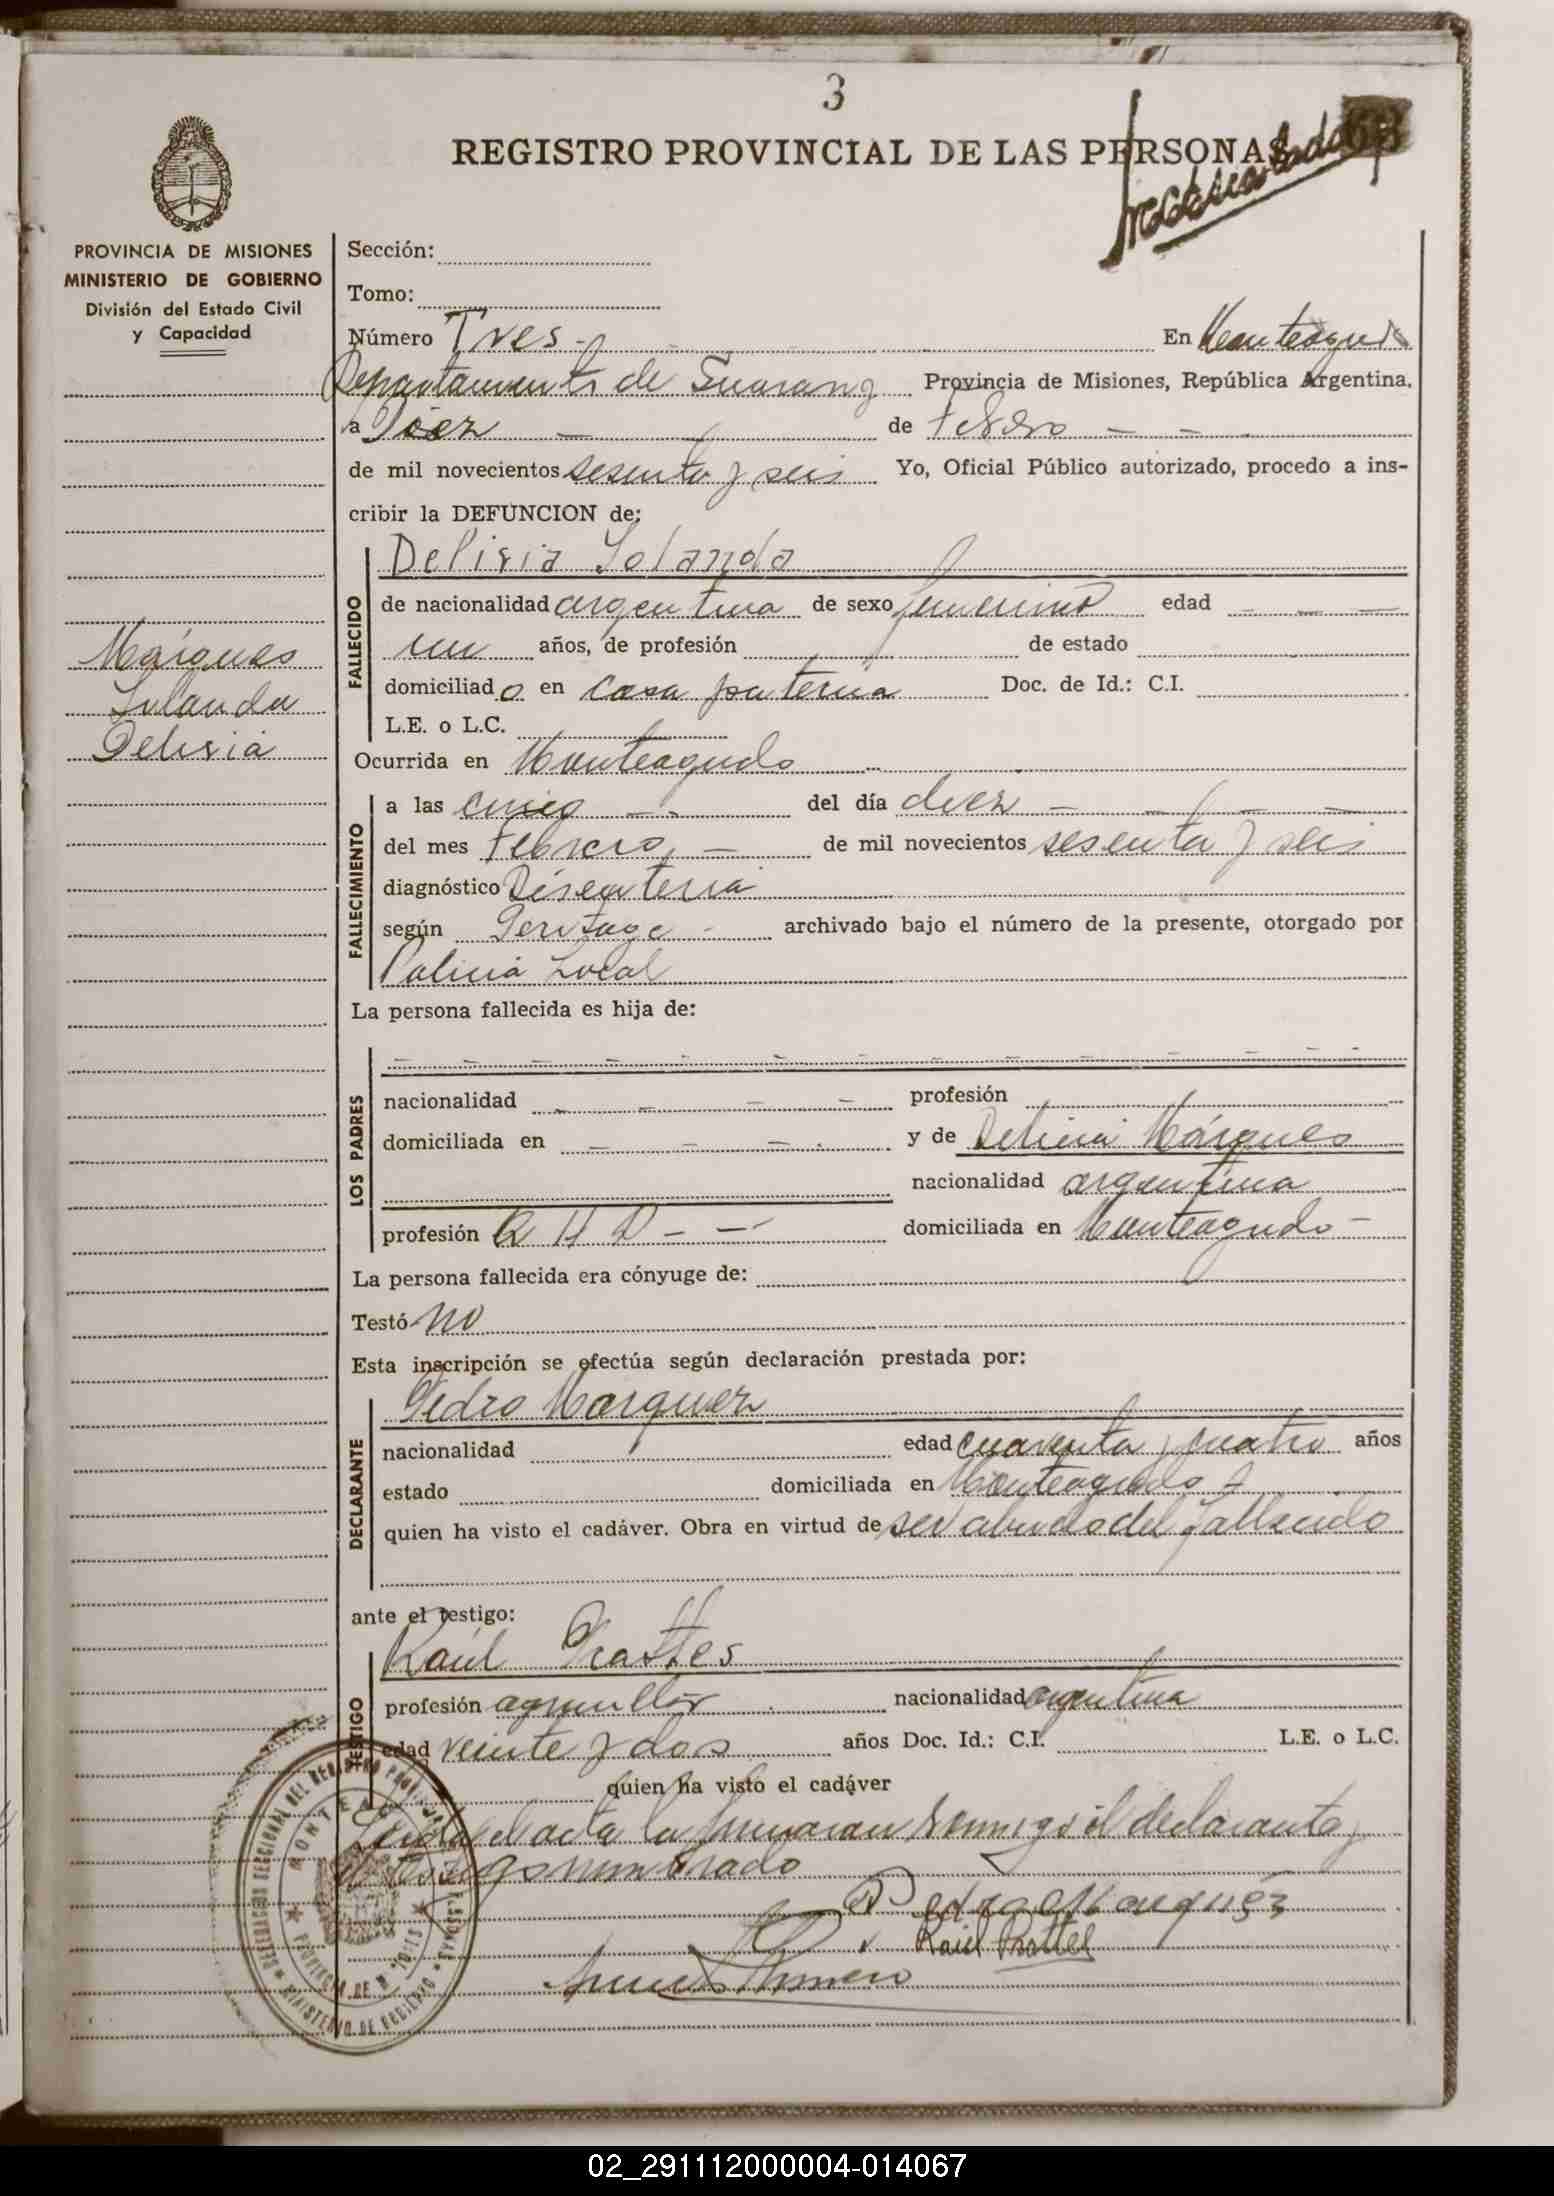 3
REGISTRO PROVINCIAL DE LAS PERSONAS
PROVINCIA DE MISIONES
MINISTERIO DE GOBIERNO
División del Estado Civil
y Capacidad
Sección:
Tomo:
Número Tres - En Monteagudo
Departamento de Guaraný Provincia de Misiones, República Argentina.
a Diez - de
de mil novecientos sesenta y seis Yo, Oficial Público autorizado, procedo a ins-
cribir la DEFUNCION de:
FALLECIDO
Delisia Iolanda
de nacionalidad argentina de sexo femenino edad - - -
un años, de profesión de estado
domiciliado en casa paterna Doc. de Id.: C.I.
L.E. o L.C.
Márques
Iolanda
Delisia
Ocurrida en Monteagudo
FALLECIMIENTO
a las cinco - - del día diez - - - -
del mes Febrero, - de mil novecientos sesenta y seis
diagnóstico Disenteria
según Peritage - archivado bajo el número de la presente, otorgado por
Policia Local
La persona fallecida es hija de:
LOS PADRES
nacionalidad - - - - profesión
domiciliada en - - - - y de Delicia Márques
nacionalidad argentina
profesión Q H D - - domiciliada en Monteagudo -
La persona fallecida era cónyuge de:
Testó no
Esta inscripción se efectúa según declaración prestada por:
DECLARANTE
Pedro Marquez
nacionalidad edad cuarenta y cuatro años
estado domiciliada en Monteagudo
quien ha visto el cadáver. Obra en virtud de ser abuelo del fallecido
ante el testigo:
TESTIGO
Raúl Prattes
profesión agricultor nacionalidad argentina
edad veinte y dos años Doc. Id.: C.I. L.E. o L.C.
quien ha visto el cadáver
Leida el acta la firmaran conmigo el declarante y
el testigo nombrado
Pedro Marquéz
Raúl Prattes
DELEGACION SECCIONAL DEL REGISTRO PROVINCIAL DE LAS PERSONAS
MONTEAGUDO
PROVINCIA DE MISIONES
MINISTERIO DE GOBIERNO
02_291112000004-014067